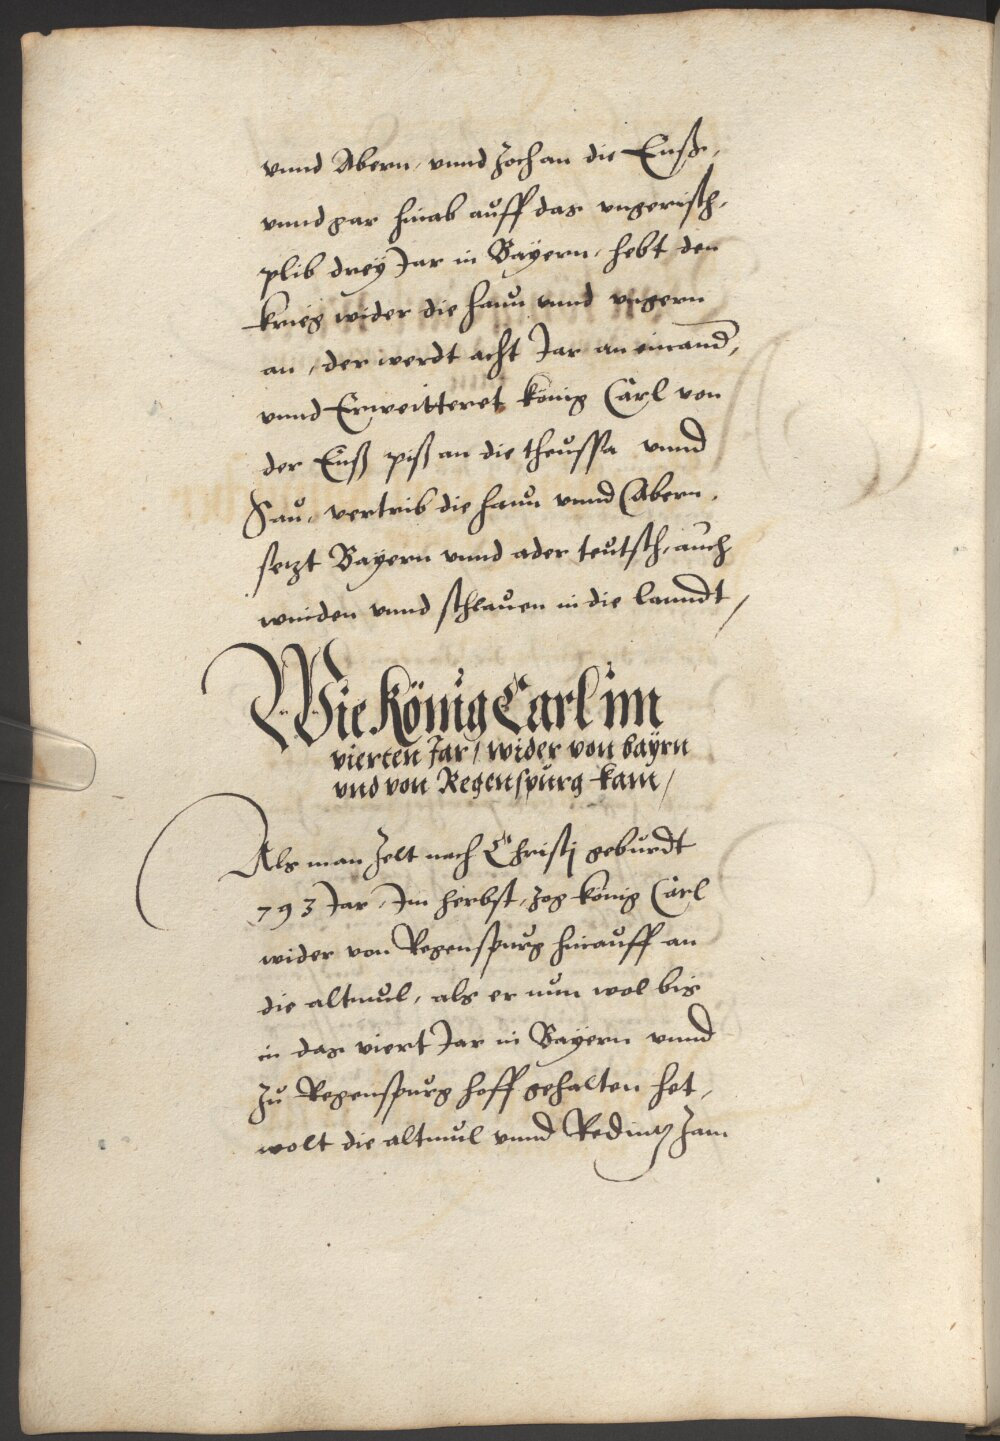 vnnd Abern, vnnd zoch an die Ennß,
vnnd gar hinab auff das vngerisch,
plib drey Jar in Bayern, hebt den
krieg wider die haun vnnd vngern
an, der werdt acht Jar an einand,
vnnd Erweitteret könig Carl von
der Enß piß an die theussa vnnd
Sau, vertrib die haun vnnd Abern,
setzt Bayern vnnd ader teutsch, auch
winden vnnd schlauen in die lanndt /
Wie König Carl im
vierten Jar / wider von bayrn
vnd von Regenspurg kam /
Als man zelt nach Christj geburdt
793 Jar, Im herbst, zog könig Carl
wider von Regenspurg hinauff an
die altmul, als er nun wol bis
in das viert Jar in Bayern vnnd
zu Regenspurg hoff gehalten het,
wolt die altmul vnnd Rednitz zam